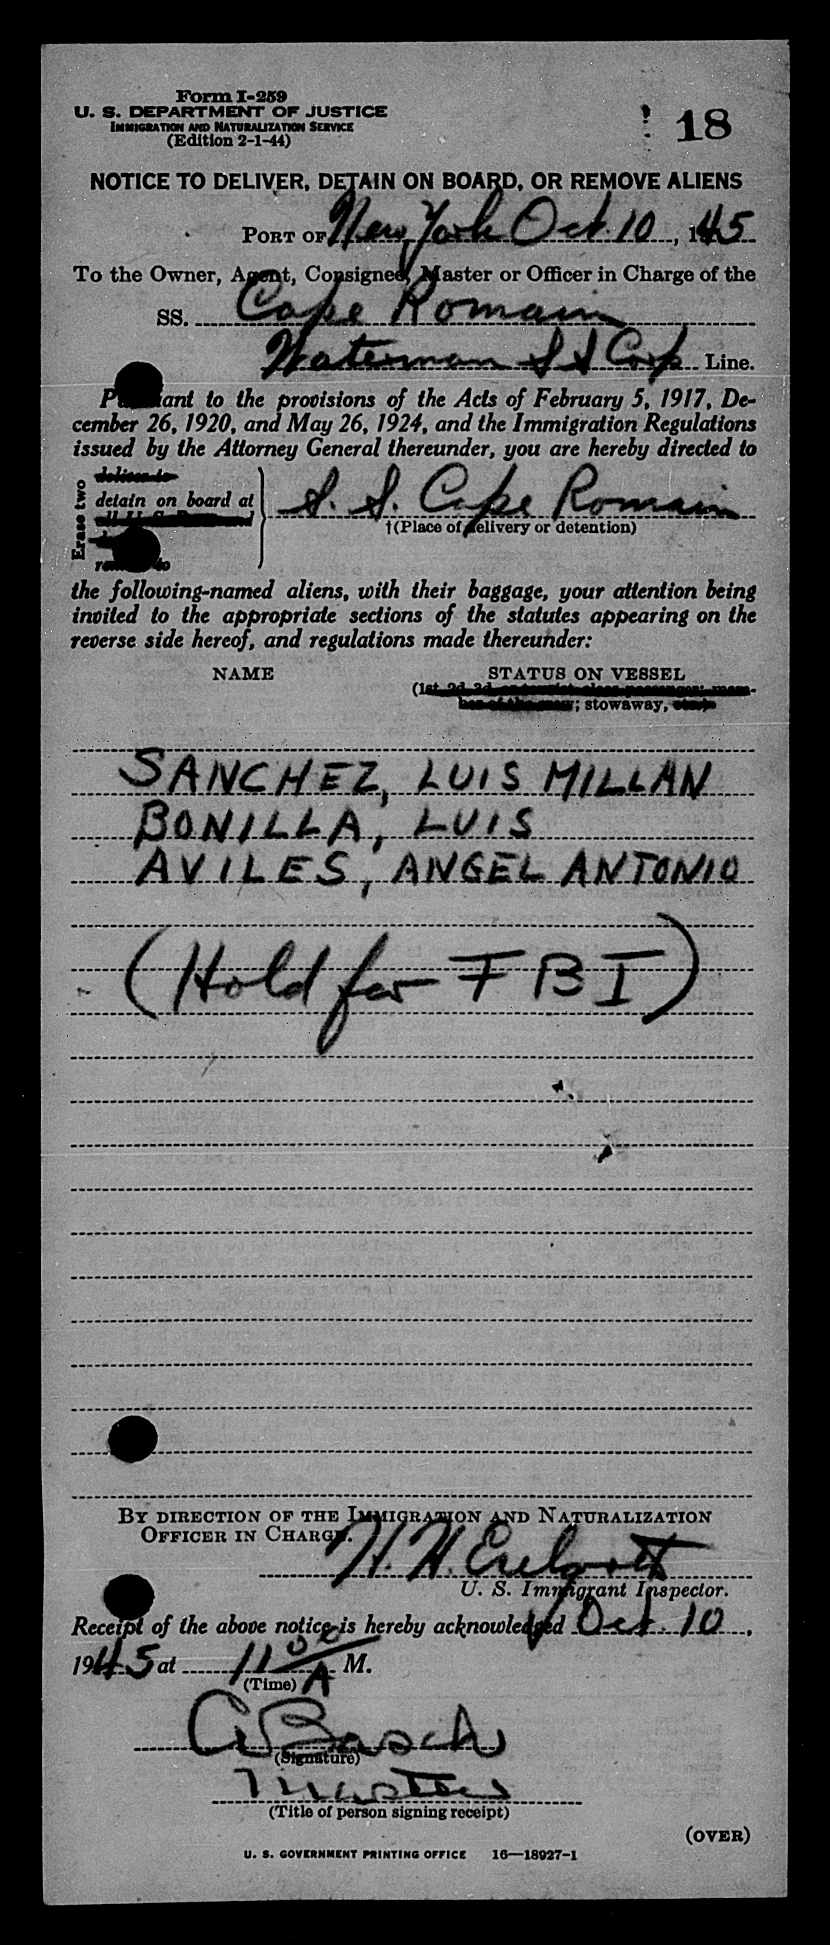 Form I-259
U. S. DEPARTMENT OF JUSTICE
IMMIGRATION AND NATURALIZATION SERVICE
(Edition 2-1-44)
18
NOTICE TO DELIVER, DETAIN ON BOARD, OR REMOVE ALIENS
PORT OF New York Oct. 10, 1945
To the Owner, Agent, Consignee, Master or Officer in Charge of the
SS. Cape Romain
Waterman S S Corp Line.
Pursuant to the provisions of the Acts of February 5, 1917, De-
cember 26, 1920, and May 26, 1924, and the Immigration Regulations
issued by the Attorney General thereunder, you are hereby directed to
Erase two
deliver to
detain on board at
S. S. Cape Romain
†(Place of delivery or detention)
the following-named aliens, with their baggage, your attention being
invited to the appropriate sections of the statutes appearing on the
reverse side hereof, and regulations made thereunder:
NAME STATUS ON VESSEL
(1st, 2d, 3d, or tourist class passenger; mem-
ber of the crew; stowaway, etc.)
SANCHEZ, LUIS MILLAN
BONILLA, LUIS
AVILES, ANGEL ANTONIO
(Hold for FBI)
BY DIRECTION OF THE IMMIGRATION AND NATURALIZATION
OFFICER IN CHARGE.
H. H.
U. S. Immigrant Inspector.
Receipt of the above notice is hereby acknowledged Oct. 10,
1945 at 11 00 A M.
(Time)
A Basch
(Signature)
Master
(Title of person signing receipt)
(OVER)
U. S. GOVERNMENT PRINTING OFFICE 16—18927-1